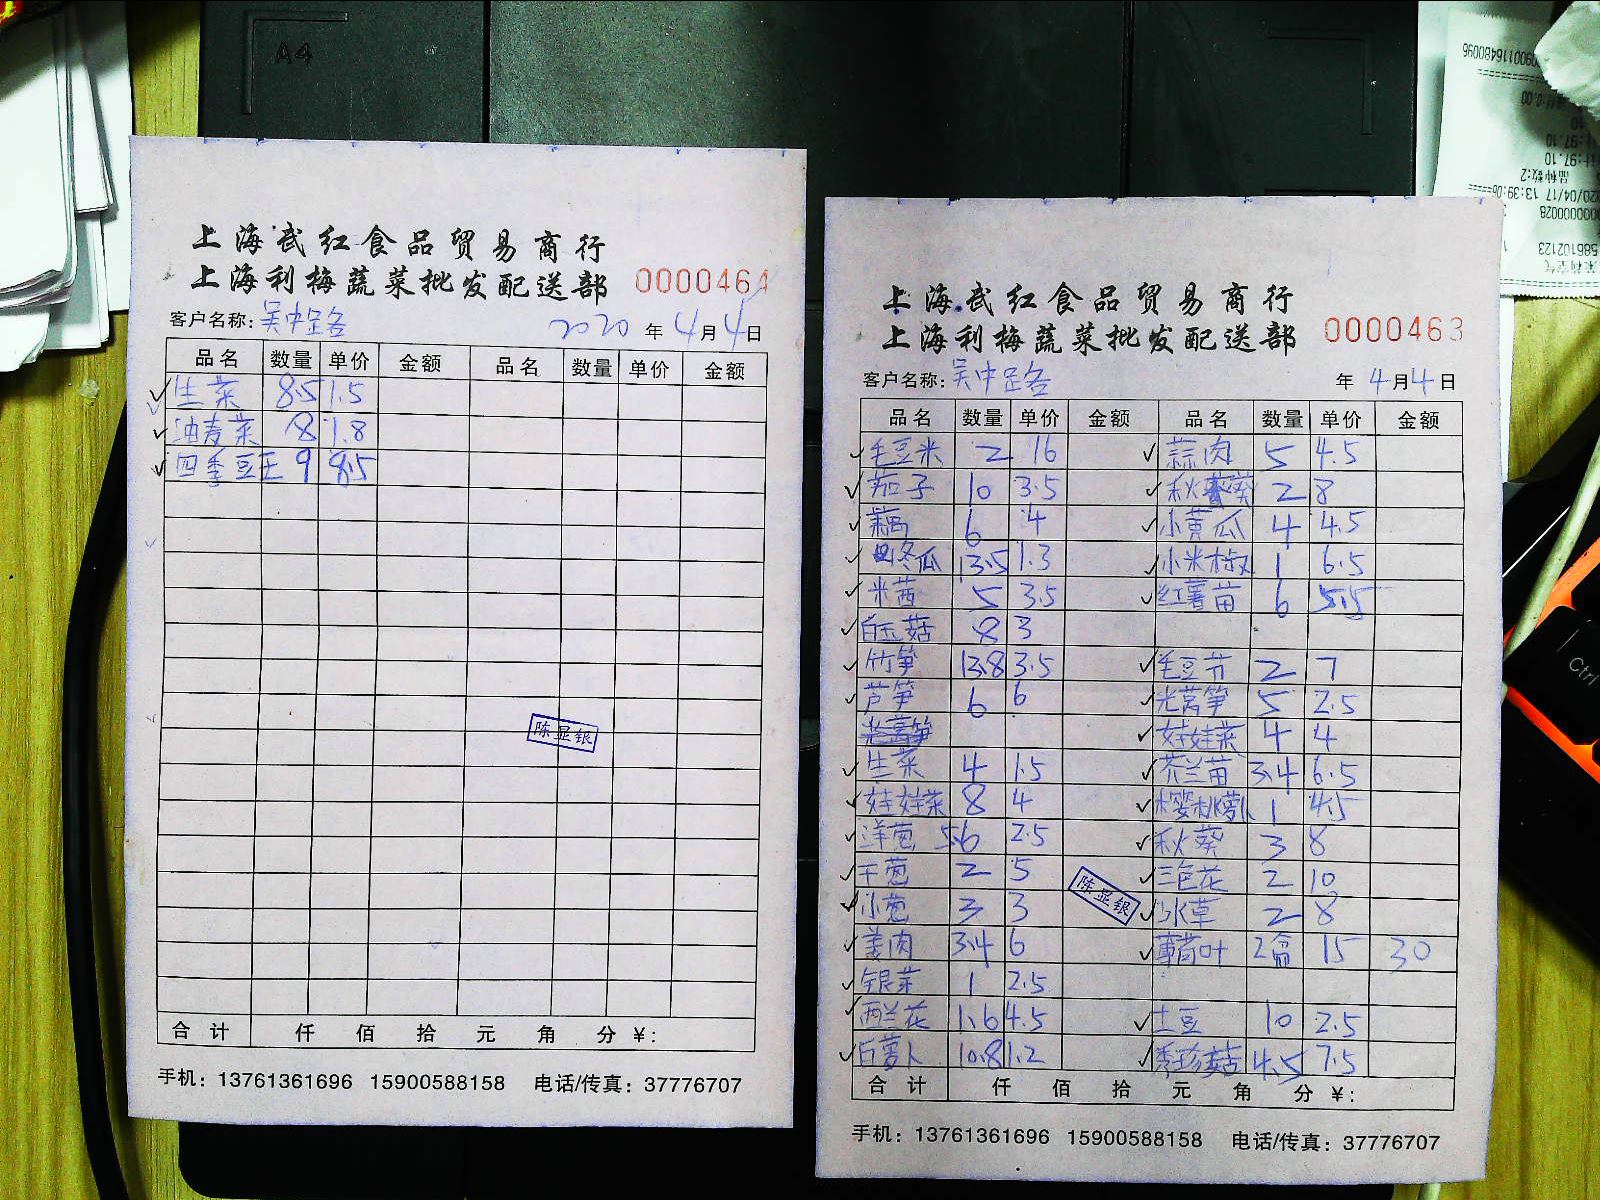 A4
上海武红食品贸易商行
上海利梅蔬菜批发配送部 0000464
客户名称: 吴中足各 2020 年 4月4日
品名 数量 单价 金额 品名 数量 单价 金额
生菜 8.5 1.5
油麦菜 8 1.8
四季豆王 9 8.5
陈显银
合计 仟 佰 拾 元 角 分 ¥:
手机: 13761361696 15900588158 电话/传真: 37776707
上海武红食品贸易商行
上海利梅蔬菜批发配送部 0000463
客户名称: 吴中足各 年 4月4日
品名 数量 单价 金额 品名 数量 单价 金额
毛豆米 2 16 蒜肉 5 4.5
茄子 10 3.5 秋葵 2 8
藕 6 4 小黄瓜 4 4.5
冬瓜 13.5 1.3 小米椒 1 6.5
米茜 5 3.5 红薯苗 6 5.5
白玉菇 8 3
竹笋 13.8 3.5 毛豆节 2 7
芦笋 6 6 光莴笋 5 2.5
光莴笋 娃娃菜 4 4
生菜 4 1.5 芥兰苗 3.4 6.5
娃娃菜 8 4 樱桃萝卜 1 4.5
洋葱 5.6 2.5 秋葵 3 8
干葱 2 5 三色花 2 10
小葱 3 3 冰草 2 8
姜肉 3.4 6 薄荷叶 2盒 15 30
银芽 1 2.5
西兰花 1.6 4.5 土豆 10 2.5
白萝卜 10.8 1.2 秀珍菇 4.5 7.5
陈显银
合计 仟 佰 拾 元 角 分 ¥:
手机: 13761361696 15900588158 电话/传真: 37776707
090011648096
:97.10
品种数:2
20/04/17 13:39:06
0000000028
586102123
Ctrl